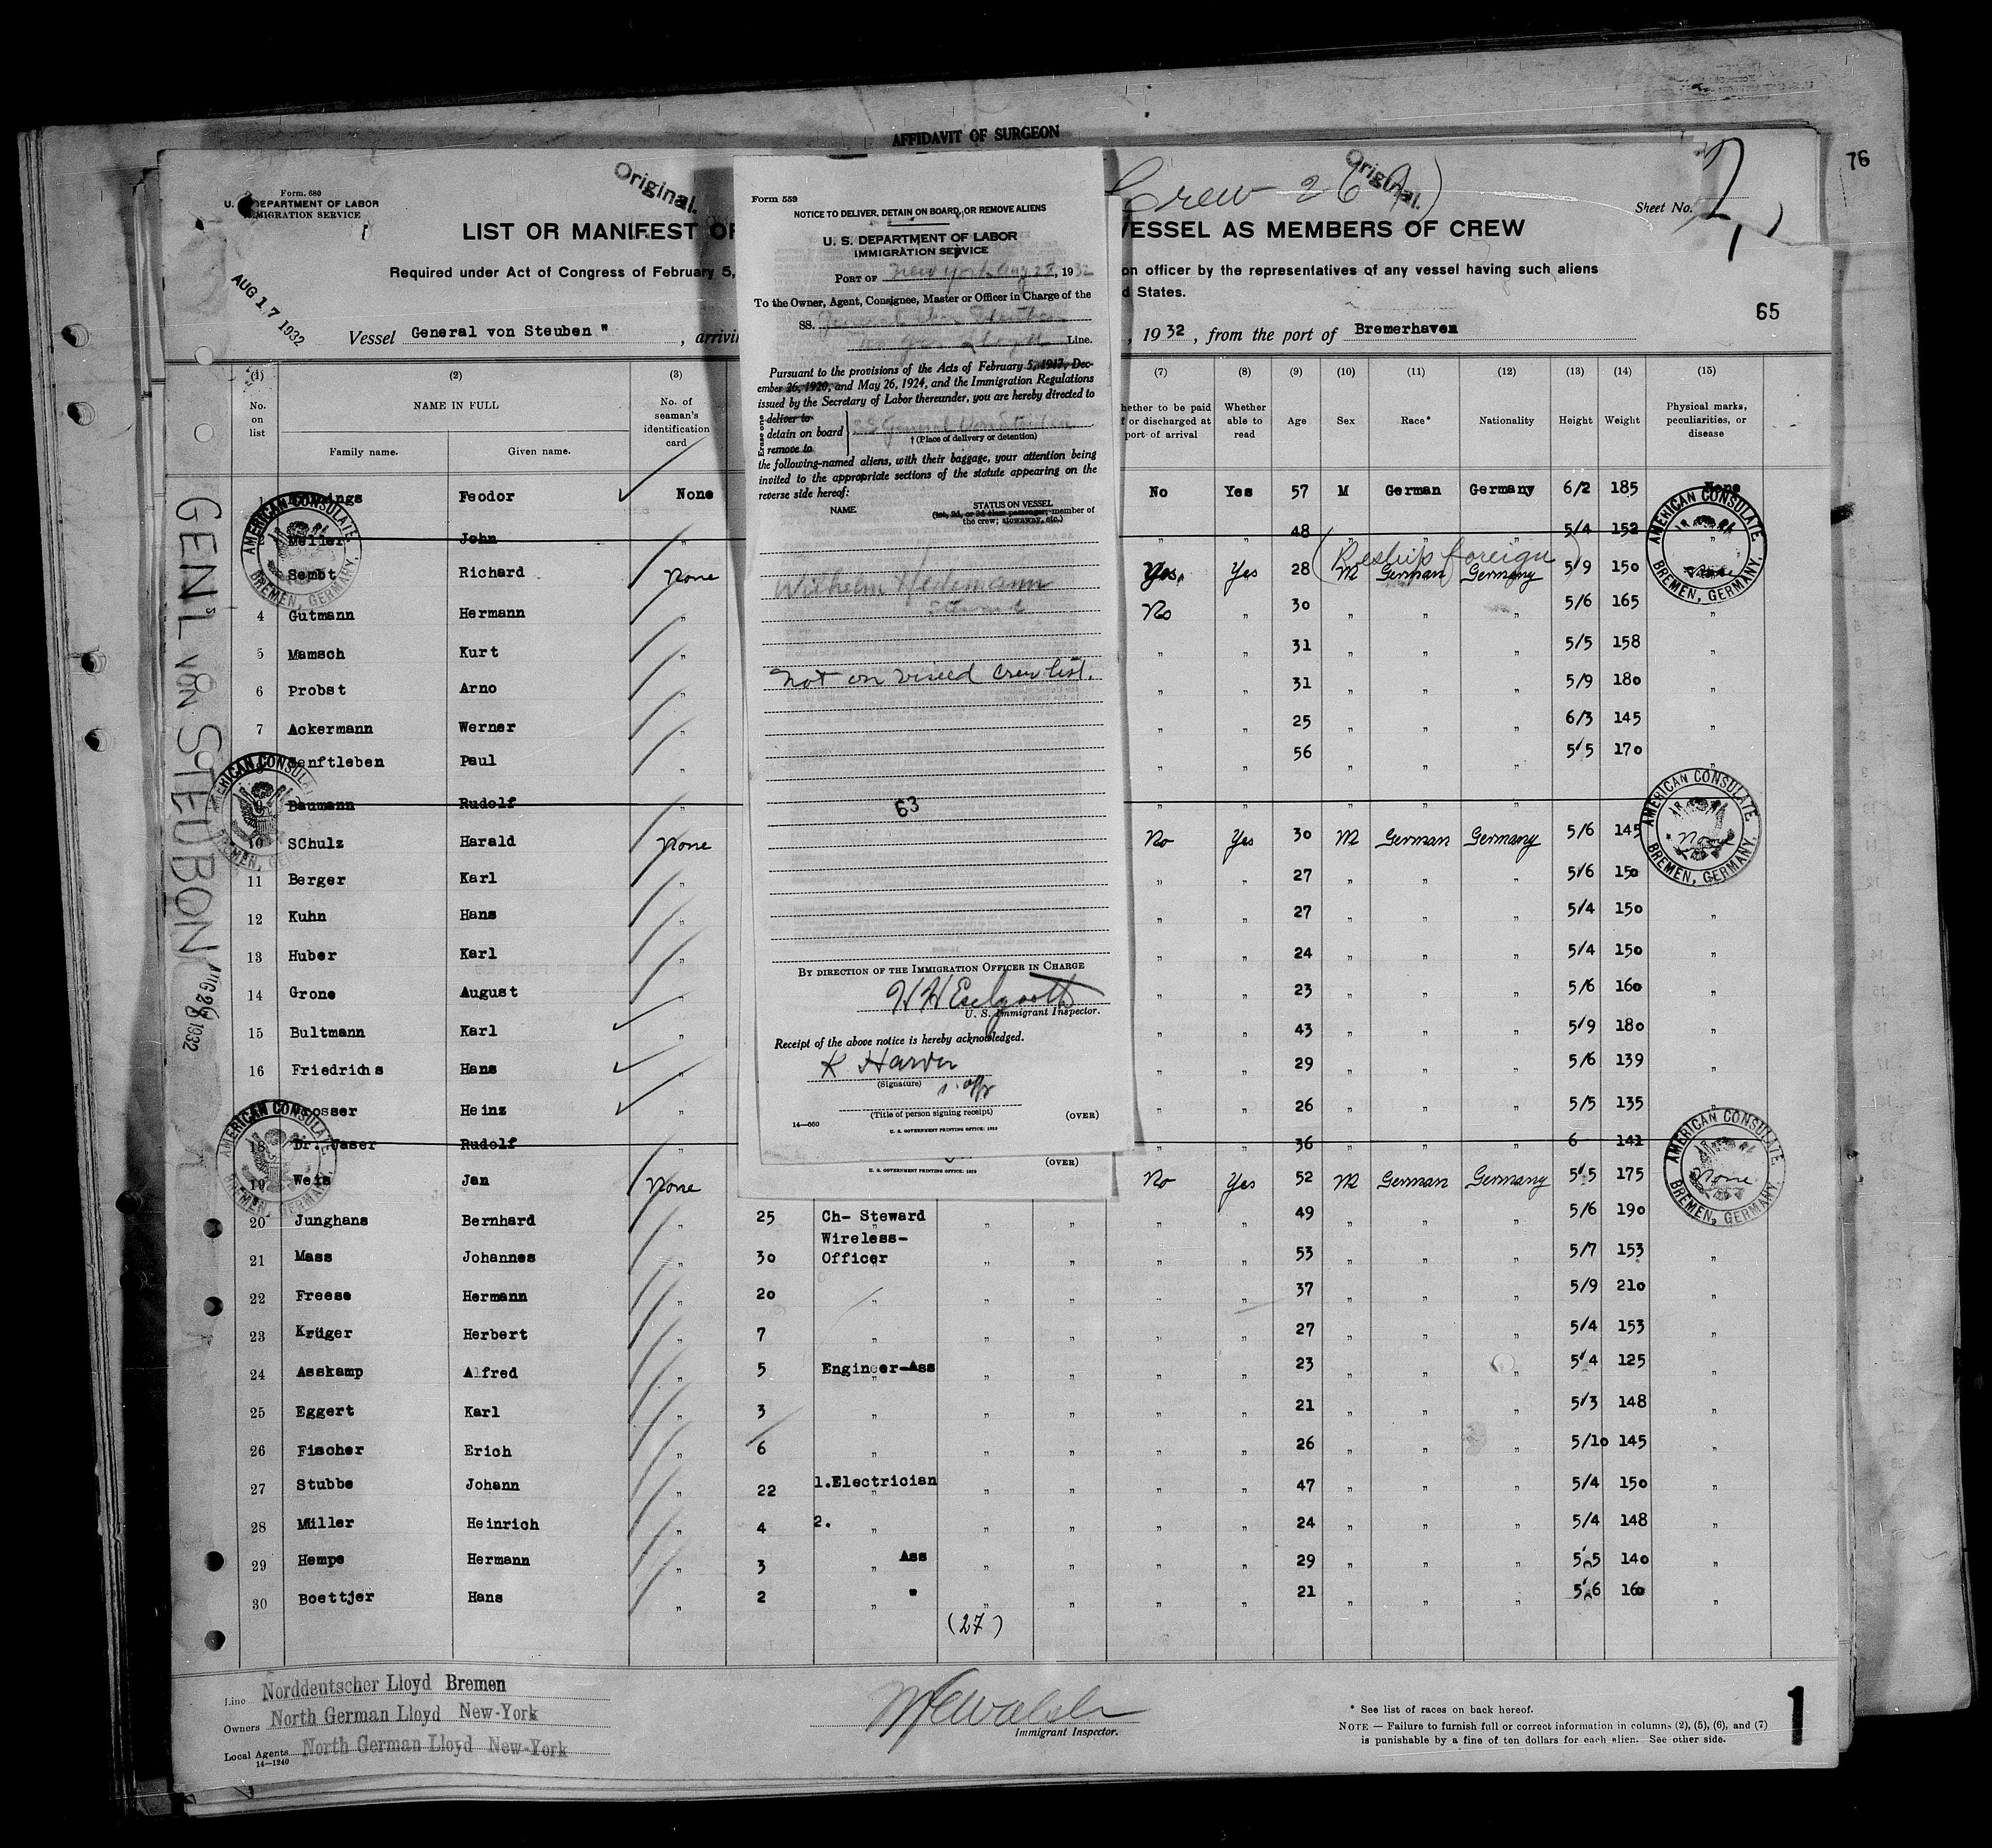 AFFIDAVIT OF SURGEON
76
Form. 680
U. S. DEPARTMENT OF LABOR
IMMIGRATION SERVICE
Original.
Original.
Crew
Sheet No.
LIST OR MANIFEST OF
VESSEL AS MEMBERS OF CREW
Required under Act of Congress of February 5,
on officer by the representatives of any vessel having such aliens
d States.
AUG 17 1932
65
Vessel General von Steuben "
, 1932, from the port of Bremerhaven
(1) (2) (3) (7) (8) (9) (10) (11) (12) (13) (14) (15)
No. on list
NAME IN FULL
Family name. Given name.
No. of seaman's identification card
hether to be paid f or discharged at port of arrival
Whether able to read
Age
Sex
Race*
Nationality
Height
Weight
Physical marks, peculiarities, or disease
1 Feodor None No Yes 57 M German Germany 6/2 185 None
Meller John " " " 48 " " " 5/4 152 "
(Reship foreign)
Sembt Richard None Yes, Yes 28 M German Germany 5/9 150
4 Gutmann Hermann " No " 30 " " " 5/6 165 "
5 Mamsch Kurt " " " 31 " " " 5/5 158 "
6 Probst Arno " " " 31 " " " 5/9 180 "
7 Ackermann Werner " " " 25 " " " 6/3 145 "
Senftleben Paul " " " 56 " " " 5/5 170 "
Baumann Rudolf " " " " " "
10 SChulz Harald None No Yes 30 M German Germany 5/6 145 None
11 Berger Karl " " " 27 " " " 5/6 150 "
12 Kuhn Hans " " " 27 " " " 5/4 150 "
13 Huber Karl " " " 24 " " " 5/4 150 "
14 Grone August " " " 23 " " " 5/6 160 "
15 Bultmann Karl " " " 43 " " " 5/9 180 "
16 Friedrichs Hans " " " 29 " " " 5/6 139 "
Heinz " " " 26 " " " 5/5 135 "
18 Rudolf " " " 36 " " " 6 141 "
19 Weis Jan None No Yes 52 M German Germany 5/5 175 None
20 Junghans Bernhard " 25 Ch- Steward " " " " 49 " " " 5/6 190 "
21 Mass Johannes " 30 Wireless-Officer " " " " 53 " " " 5/7 153 "
22 Freese Hermann " 20 " " " " " 37 " " " 5/9 210 "
23 Krüger Herbert " 7 " " " " " 27 " " " 5/4 153 "
24 Asskamp Alfred " 5 Engineer-Ass " " " " 23 " " " 5/4 125 "
25 Eggert Karl " 3 " " " " " 21 " " " 5/3 148 "
26 Fischer Erich " 6 " " " " " 26 " " " 5/10 145 "
27 Stubbe Johann " 22 1.Electrician " " " " 47 " " " 5/4 150 "
28 Müller Heinrich " 4 2. " " " " " 24 " " " 5/4 148 "
29 Hempe Hermann " 3 " Ass " " " " 29 " " " 5/5 140 "
30 Boettjer Hans " 2 " " " " " " 21 " " " 5/6 160 "
(27)
Form 559
NOTICE TO DELIVER, DETAIN ON BOARD, OR REMOVE ALIENS
U. S. DEPARTMENT OF LABOR
IMMIGRATION SERVICE
PORT OF New York Aug 28, 1932
To the Owner, Agent, Consignee, Master or Officer in Charge of the
SS. General Von Steuben
No Ger Lloyd Line.
Pursuant to the provisions of the Acts of February 5, 1917, Dec-
ember 26, 1920, and May 26, 1924, and the Immigration Regulations
issued by the Secretary of Labor thereunder, you are hereby directed to
Erase one
deliver to
detain on board
remove to
SS General Von Steuben
† (Place of delivery or detention)
the following-named aliens, with their baggage, your attention being
invited to the appropriate sections of the statute appearing on the
reverse side hereof:
NAME
STATUS ON VESSEL
(1st, 2d, or 3d class passenger; member of
the crew; stowaway, etc.)
Wilhelm Hedemann
Steward
Not on viseed crew list.
63
BY DIRECTION OF THE IMMIGRATION OFFICER IN CHARGE
U. S. Immigrant Inspector.
Receipt of the above notice is hereby acknowledged.
(Signature)
1. offr
(Title of person signing receipt)
(OVER)
14—660
U. S. GOVERNMENT PRINTING OFFICE: 1930
U. S. GOVERNMENT PRINTING OFFICE: 1929
(OVER)
GEN'L VON STEUBON
AUG 28 1932
AMERICAN CONSULATE
BREMEN, GERMANY.
AMERICAN CONSULATE
BREMEN, GERMANY.
AMERICAN CONSULATE
BREMEN, GERMANY.
AMERICAN CONSULATE
BREMEN, GERMANY.
AMERICAN CONSULATE
BREMEN, GERMANY.
AMERICAN CONSULATE
BREMEN, GERMANY.
Line Norddeutscher Lloyd Bremen
Owners North German Lloyd New-York
Local Agents North German Lloyd New-York
14—1240
Immigrant Inspector.
* See list of races on back hereof.
NOTE — Failure to furnish full or correct information in columns (2), (5), (6), and (7)
is punishable by a fine of ten dollars for each alien. See other side.
1